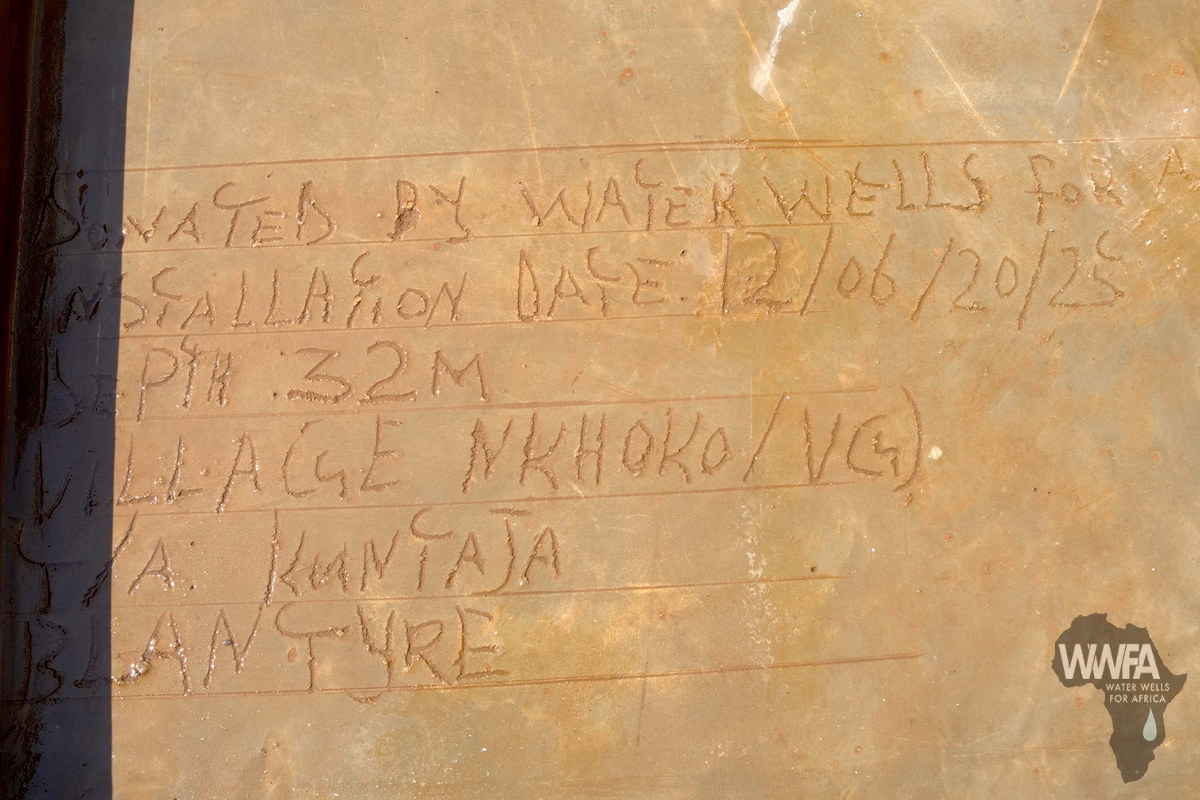 DONATED BY WATER WELLS FOR A
INSTALLATION DATE: 12/06/20/25
DEPTH 32M
VILLAGE NKHOKO/VG)
T/A. KUNTAJA
BLANTYRE
WWFA
WATER WELLS
FOR AFRICA